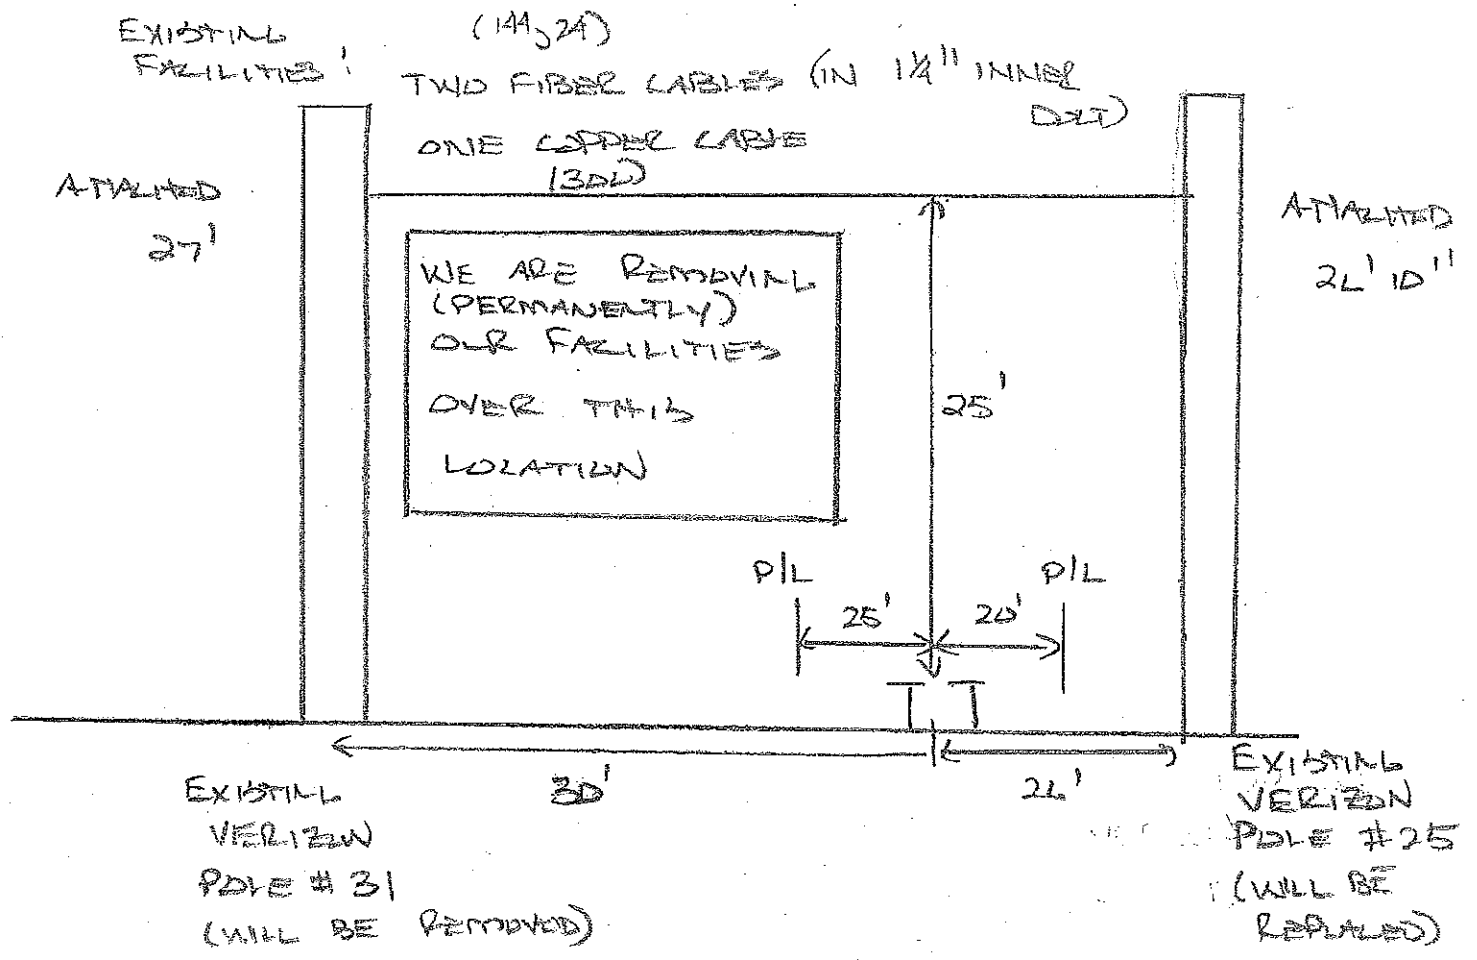 EXISTING
FACILITIES:
(144, 24)
TWO FIBER CABLES (IN 1¼" INNER
DUCT)
ONE COPPER CABLE
(300)
ATTACHED
27'
ATTACHED
26' 10"
WE ARE REMOVING
(PERMANENTLY)
OUR FACILITIES
OVER THIS
LOCATION
25'
P/L
P/L
25'
20'
30'
26'
EXISTING
VERIZON
POLE # 31
(WILL BE REMOVED)
EXISTING
VERIZON
POLE # 25
(WILL BE
REPLACED)